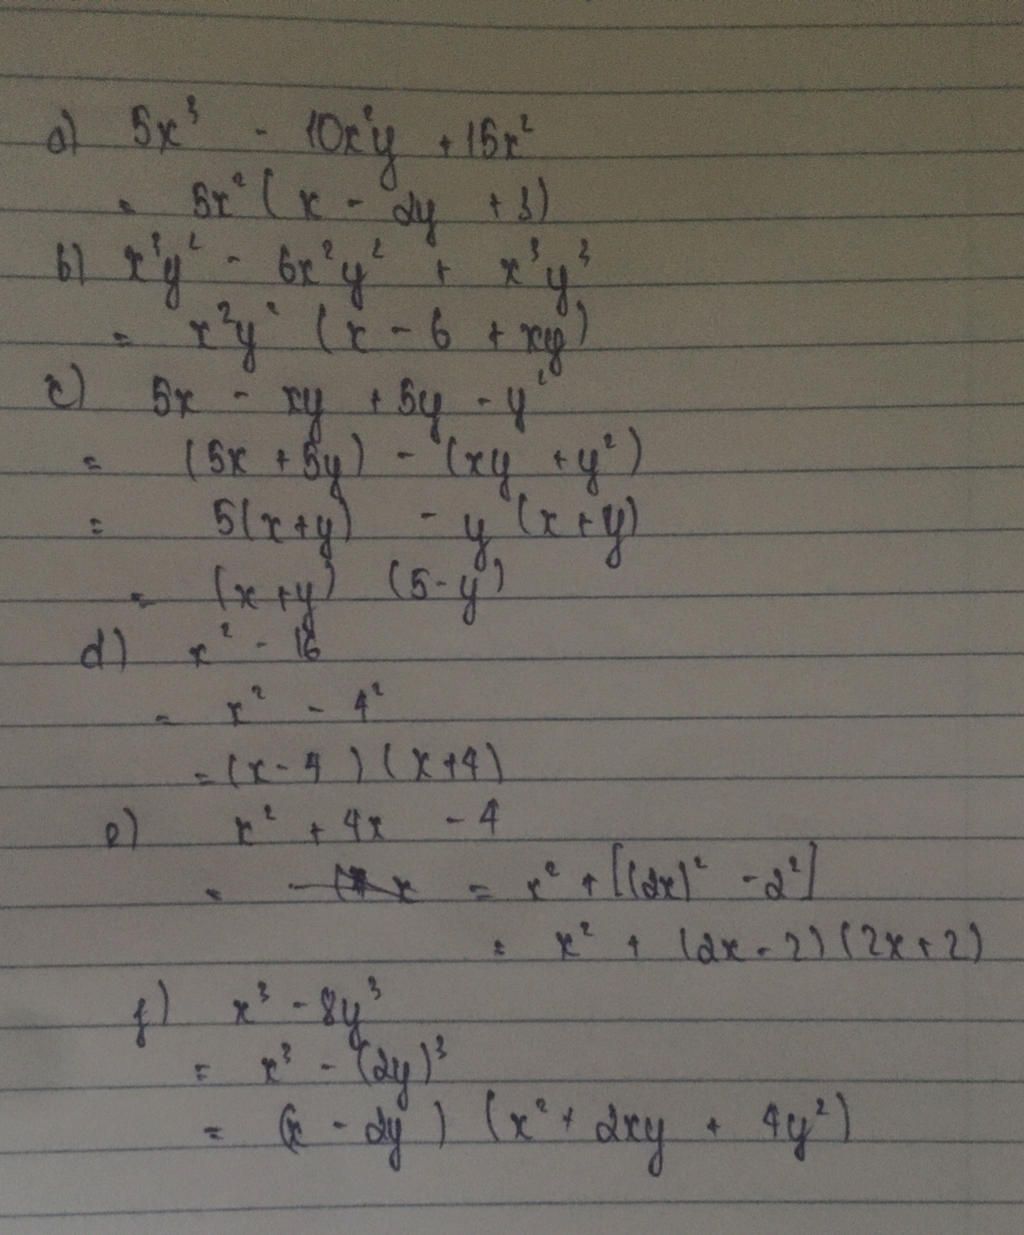 a) 5x³ - 10x²y + 15x²
= 5x² ( x - 2y + 3)
b) x³y² - 6x²y² + x³y³
= x²y² (x - 6 + xy)
c) 5x - xy + 5y - y²
= (5x + 5y) - (xy + y²)
= 5(x+y) - y (x+y)
= (x+y) (5-y)
d) x² - 16
= x² - 4²
= (x-4) (x+4)
e) x² + 4x - 4
= = x² + [(2x)² - 2²]
= x² + (2x - 2) (2x + 2)
f) x³ - 8y³
= x³ - (2y)³
= (x - 2y) (x² + 2xy + 4y²)